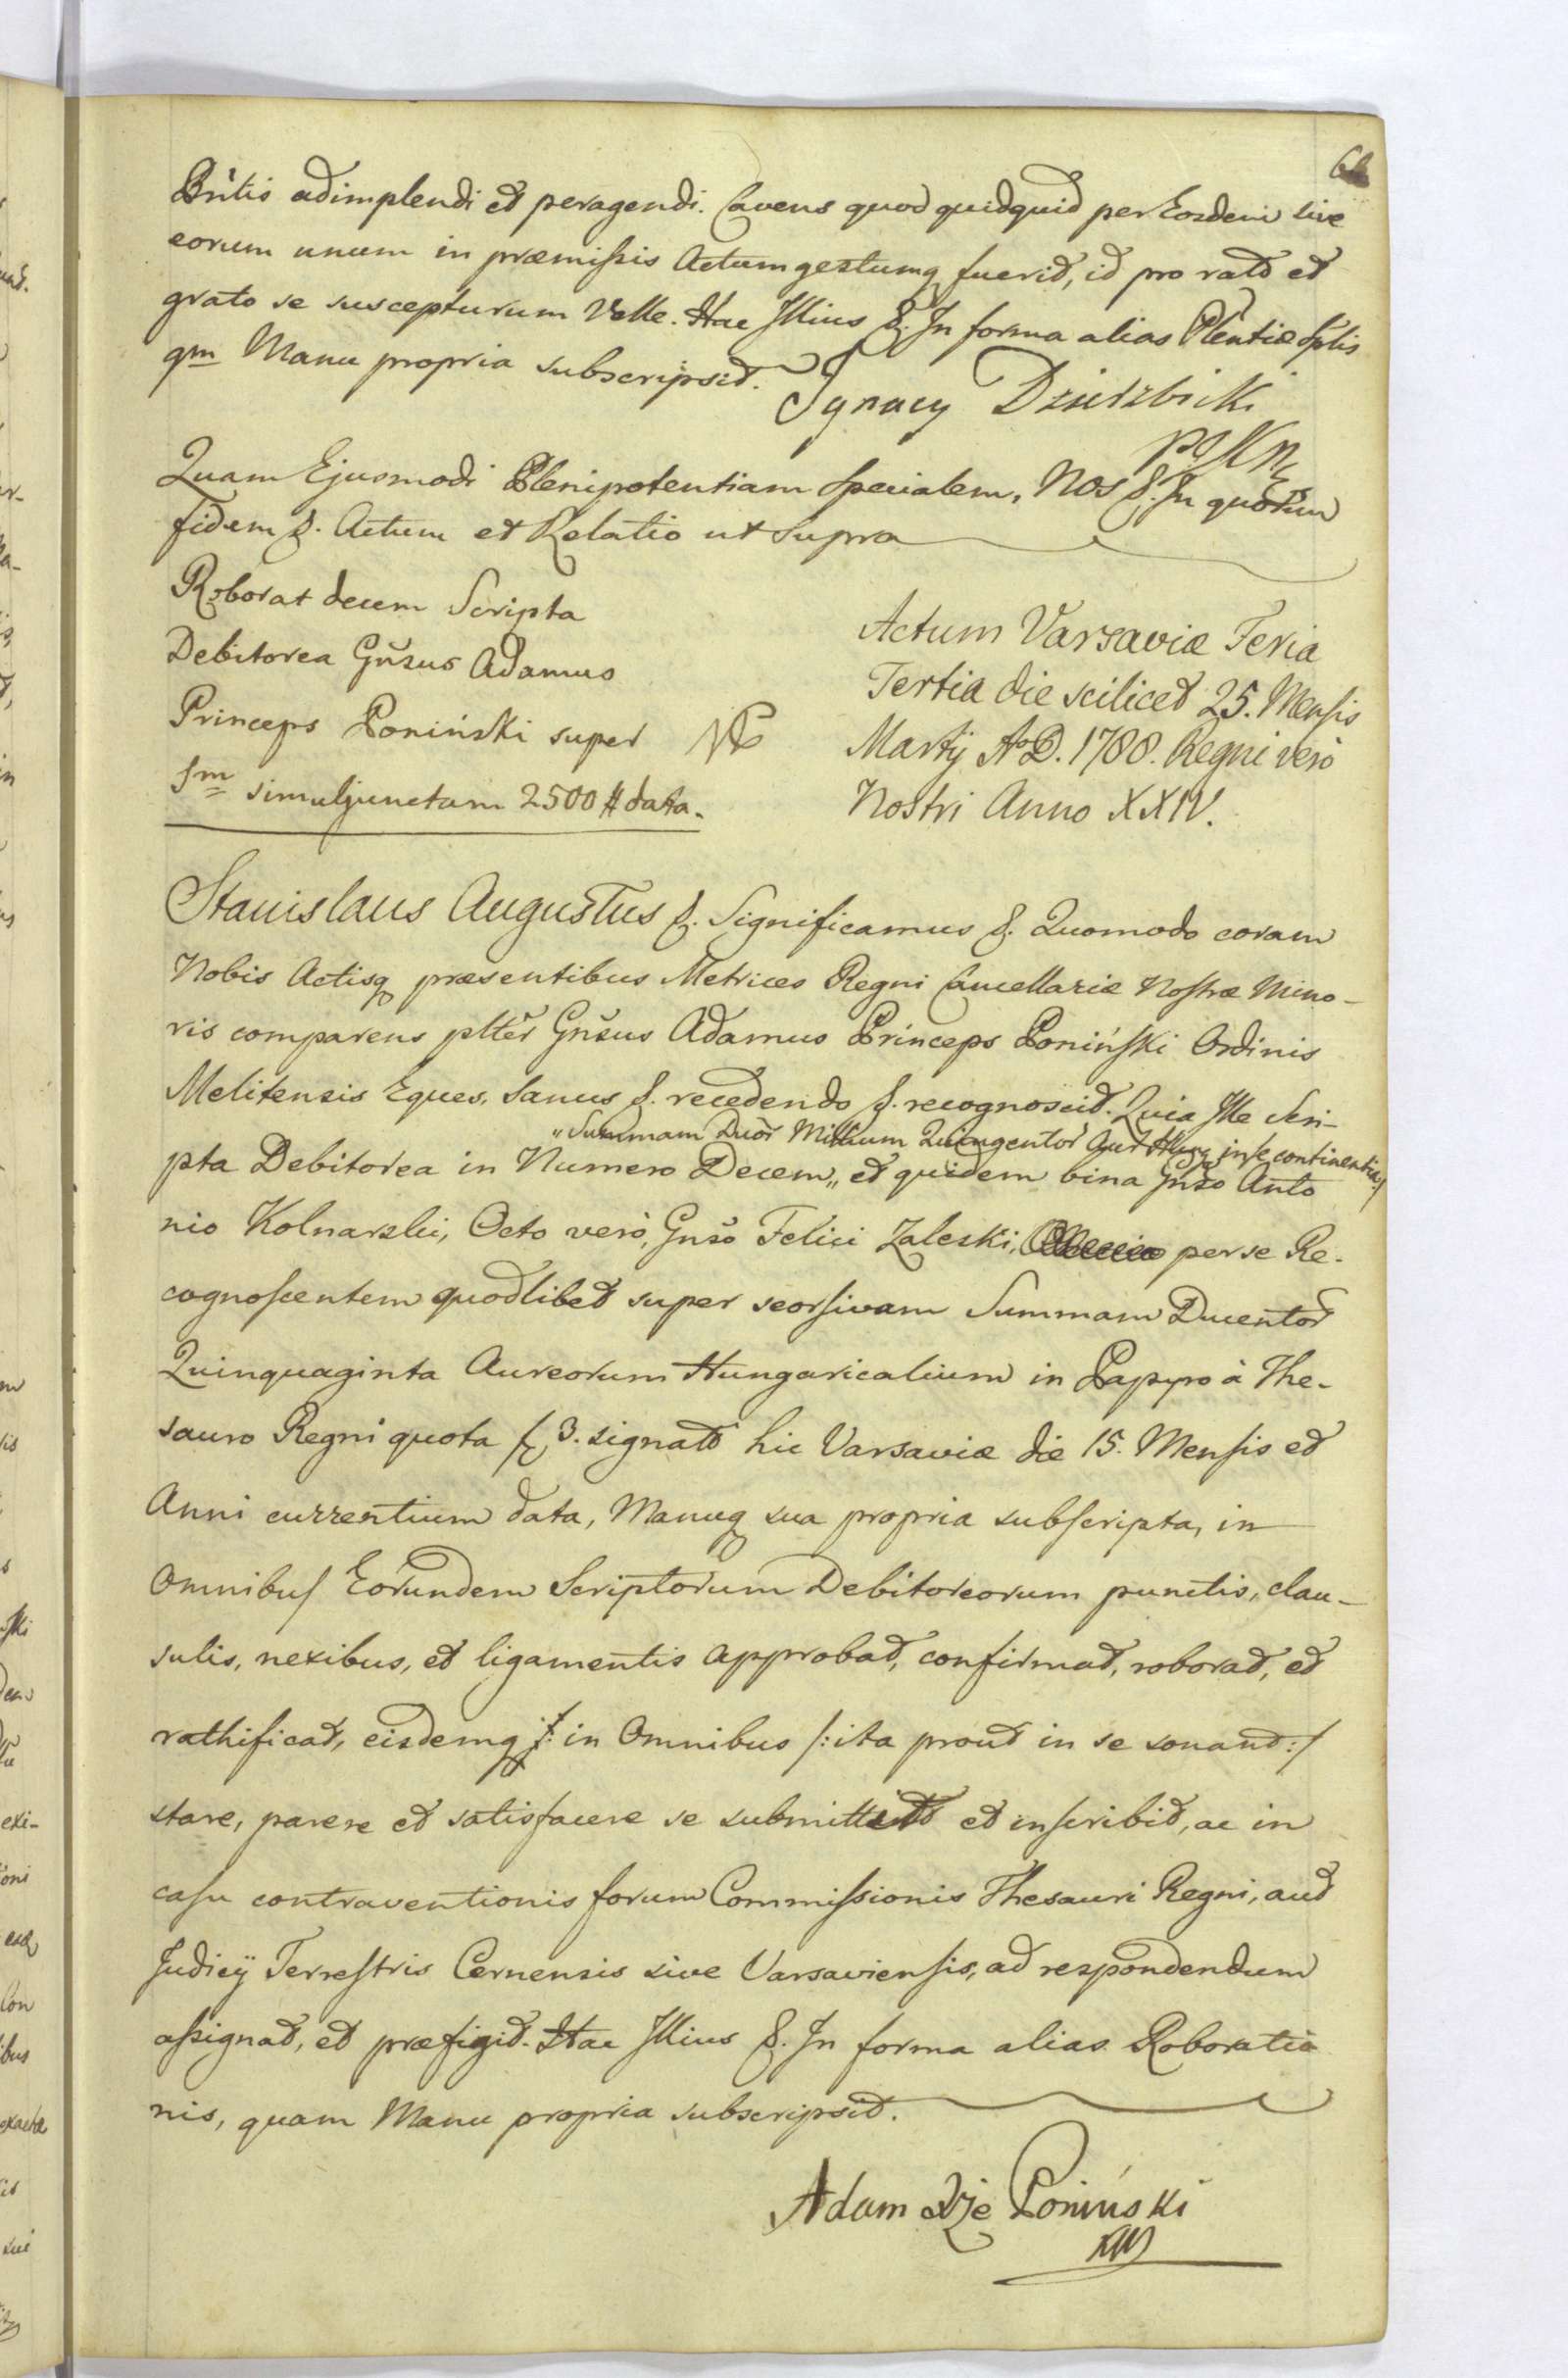 Pñtis adimplendi et peragendi. Cavens quod quidquid per Eosdem sive
eorum unum in præmissis Actum gestumq fuerit, id pro rato et
grato se suscepturum Velle. Hac Illius &. In forma alias Plentiæ Splis
qm Manu propria subscripsit.
Ignacy Dzierzbicki
Quam Ejusmodi Plenipotentiam Specialem, Nos &. In quorum
fidem &. Actum et Relatio ut supra
Roborat decem Scripta
Debitorea Gnsus Adamus
Princeps Poniński super
Sm simuljunctam 2500 # data.
Actum Varsaviæ Feria
Tertia die scilicet 25. Mensis
Martij A°D. 1788. Regni verò
Nostri Anno XXIV.
Stanislaus Augustus &. Significamus &. Quomodo coram
Nobis Actisq præsentibus Metrices Regni Cancellariæ Nostræ Mino-
ris comparens pltẽr Gnsus Adamus Princeps Poniński Ordinis
Melitensis Eques, Sanus &. recedendo &. recognoscit. Quia Ille Scri-
„Summam Duor Millium Quingentor Aur Hung in se continentia:/
pta Debitorea in Numero Decem„ et quidem bina Gnso Anto
nio Kolnarski, Octo verò, Gnso Felici Zaleski, per se Re-
cognoscentem quodlibet super seorsivam Summam Ducentor
Quinquaginta Aureorum Hungaricalium in Papyro à The-
sauro Regni quota 3. signato hic Varsaviæ die 15. Mensis et
Anni currentium data, Manuq sua propria subscripta, in
Omnibus Eorundem Scriptorum Debitoreorum punctis, clau-
sulis, nexibus, et ligamentis approbat, confirmat, roborat, et
rathificat, eisdemq in Omnibus /: ita prout in se sonant :/
stare, parere et satisfacere se submittit et inscribit, ac in
casu contraventionis forum Commissionis Thesauri Regni, aut
Judicÿ Terrestris Cernensis sive Varsaviensis, ad respondendum
assignat, et præfigit. Hac Illius &. In forma alias Roboratio
nis, quam Manu propria subscripsit.
Adam Xże Poniński